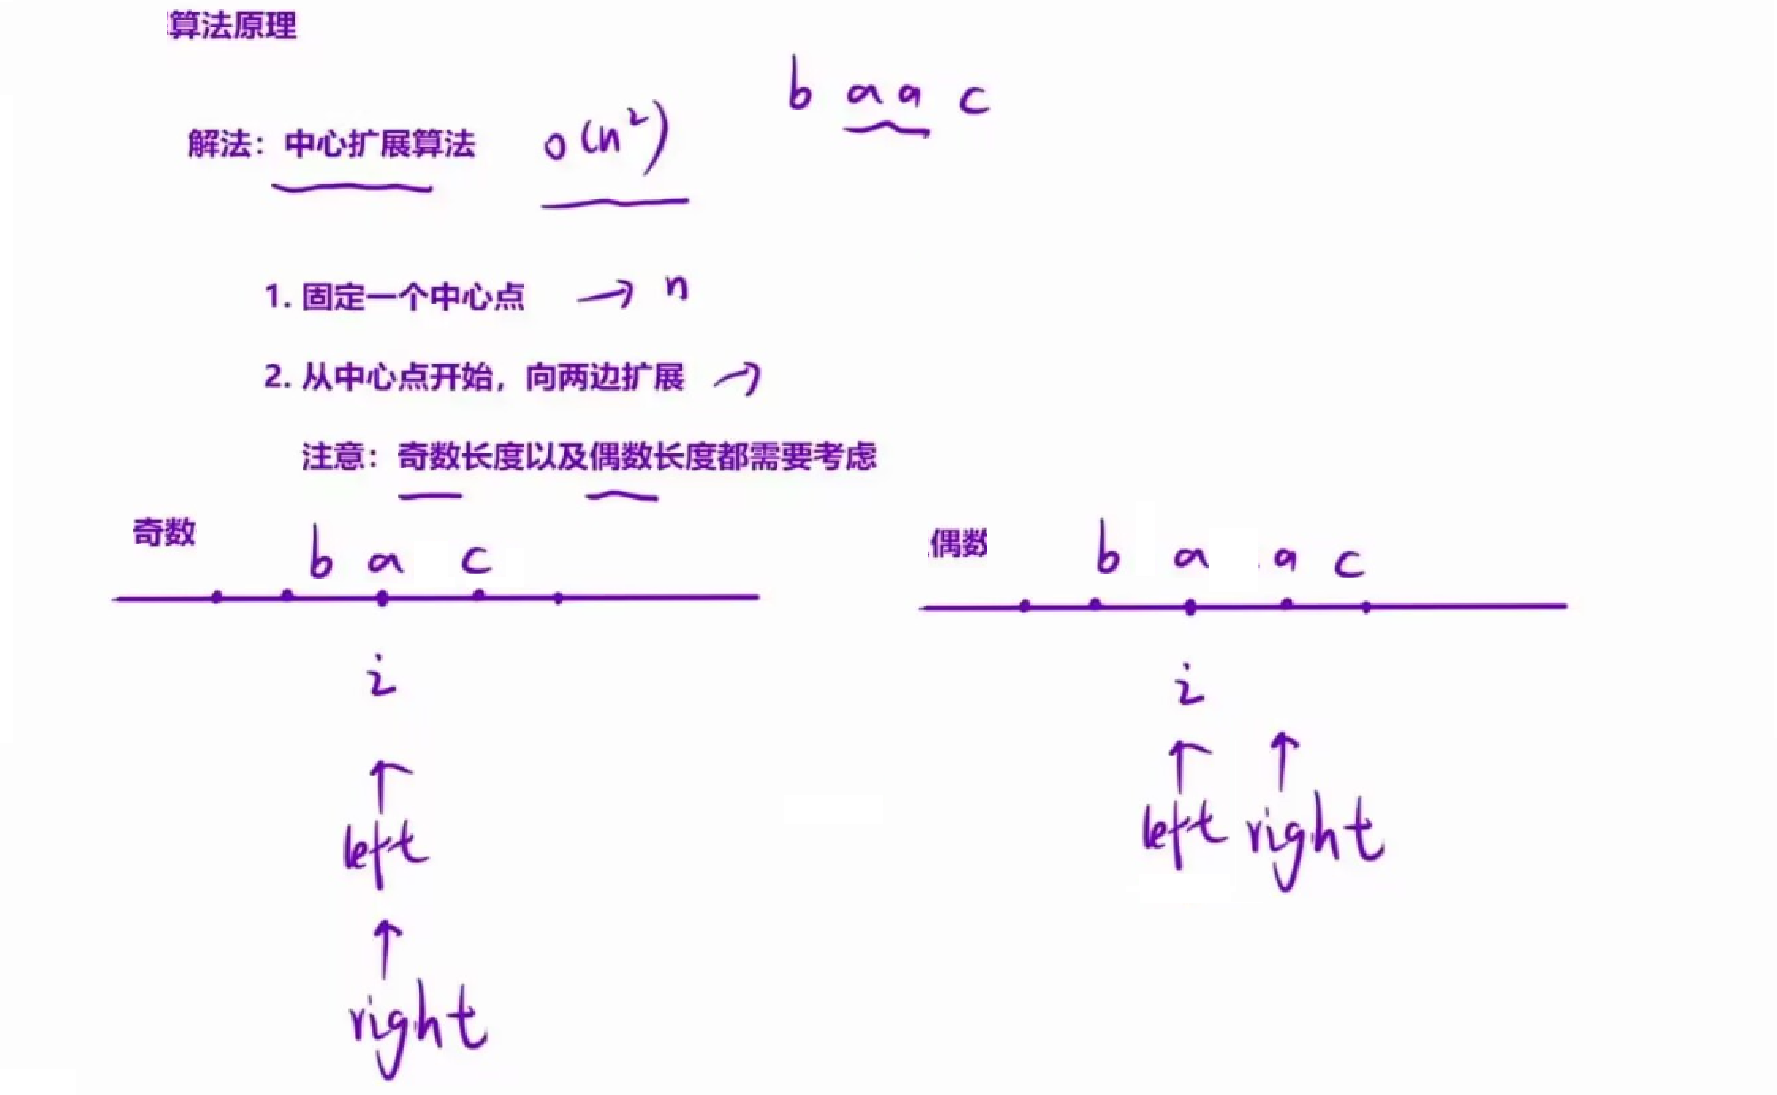 算法原理
b a a c
解法：中心扩展算法 O(n²)
1. 固定一个中心点 → n
2. 从中心点开始，向两边扩展 →
注意：奇数长度以及偶数长度都需要考虑
奇数 b a c
i
↑
left
↑
right
偶数 b a a c
i
↑ ↑
left right